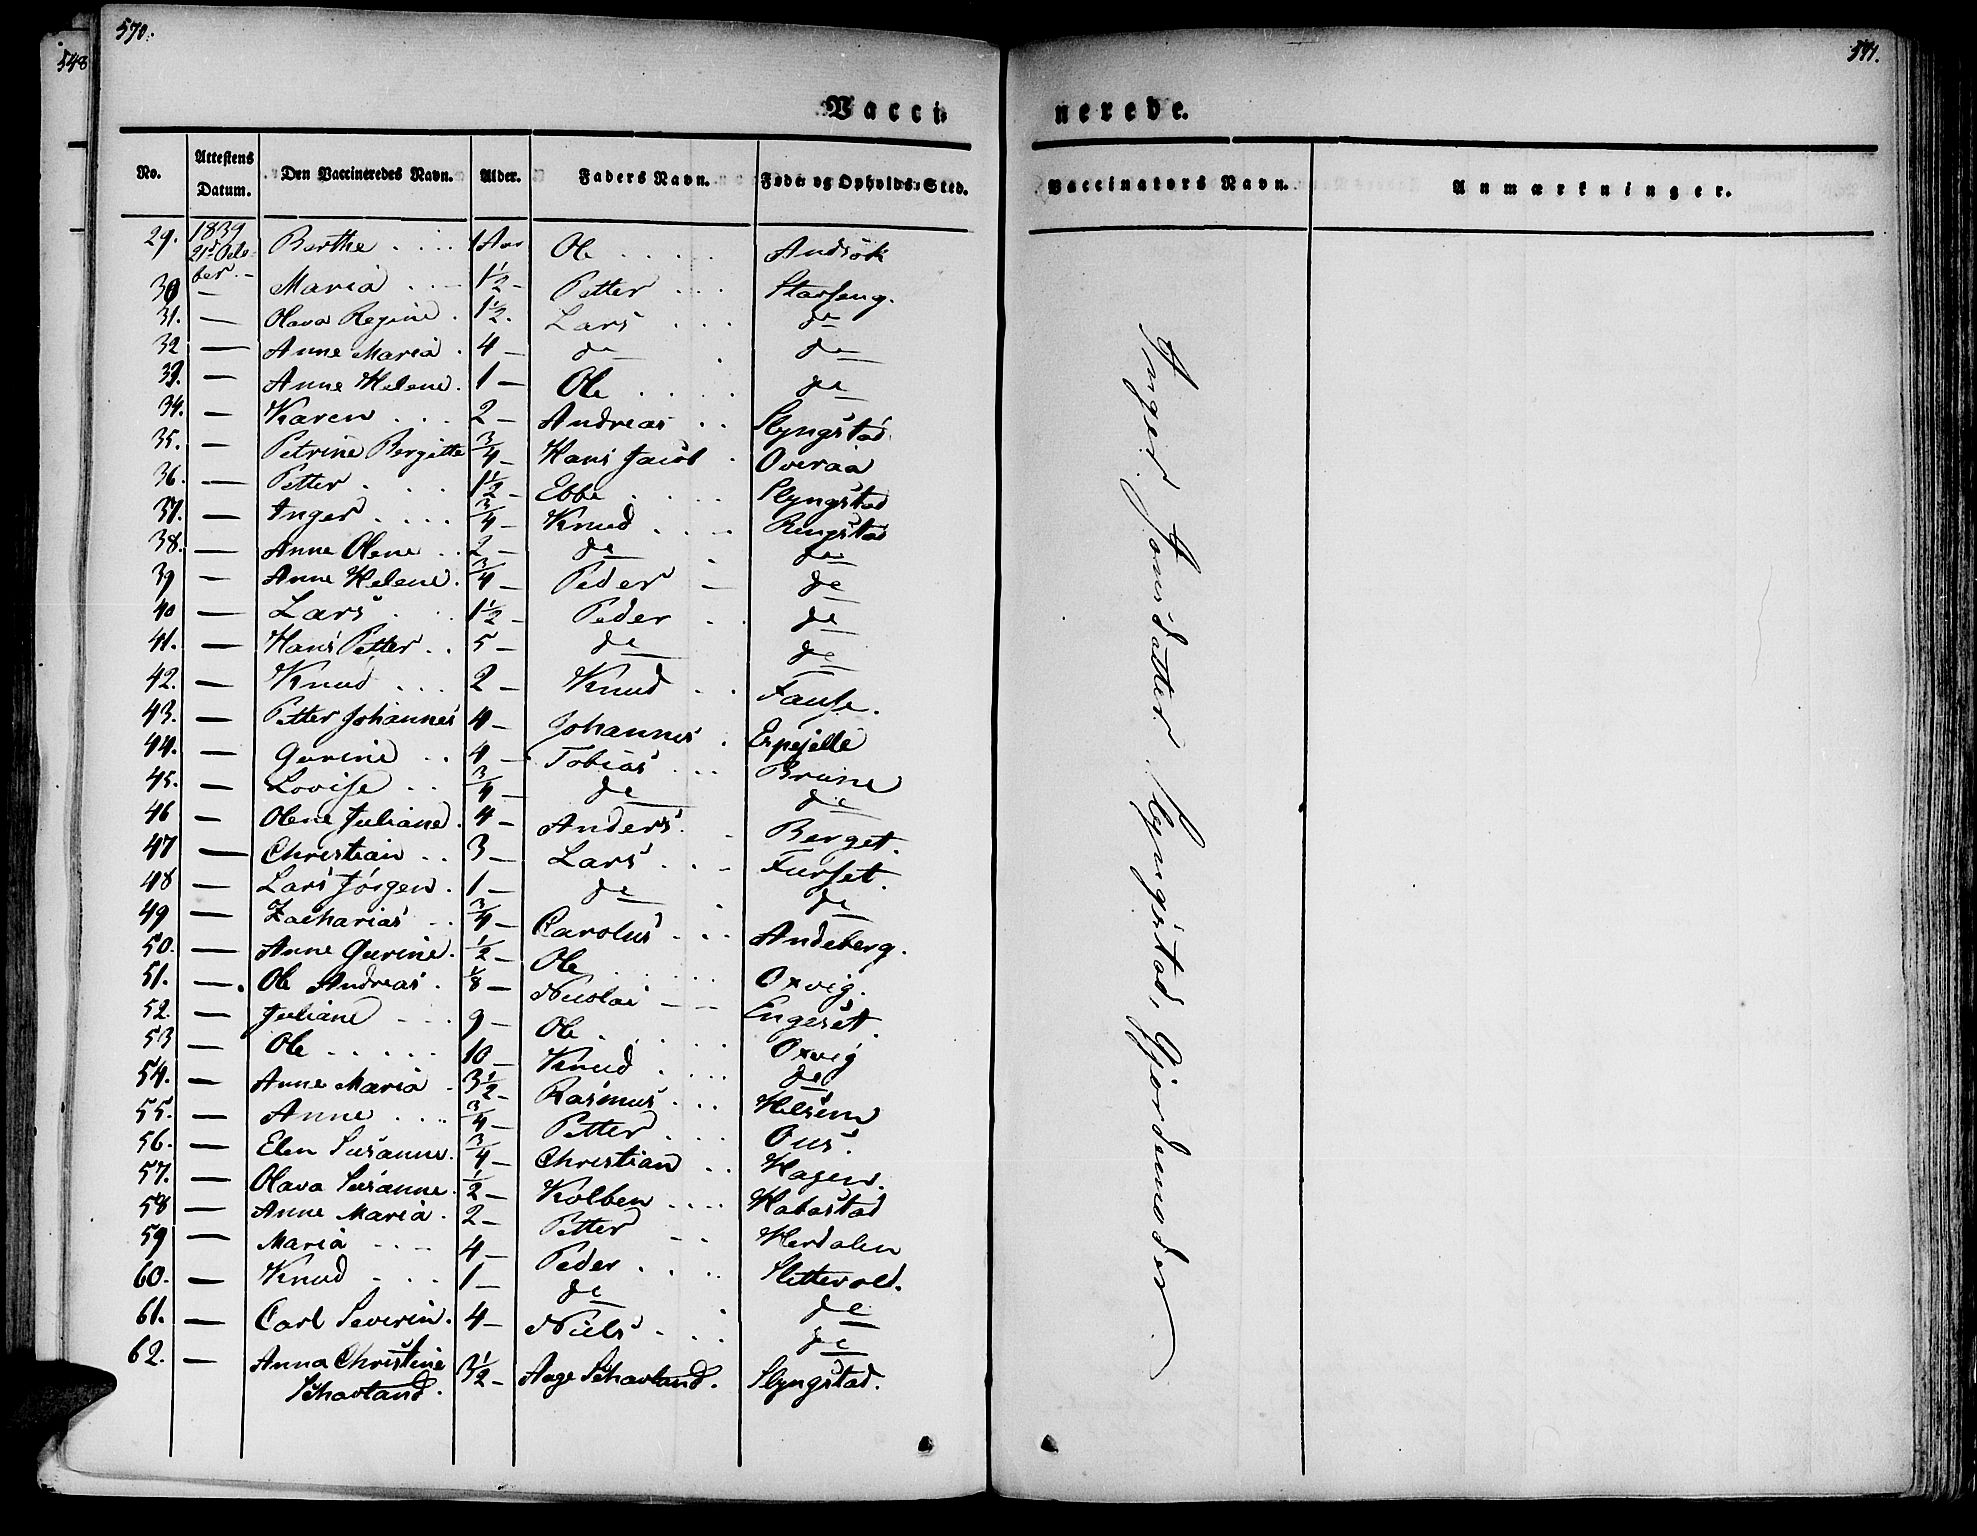 570.
548
571.
Vacci-
nerede.
No. Attestens Datum. Den Vaccineredes Navn. Alder. Faders Navn. Føde- og Opholds-Sted.
Vaccinators Navn. Anmærkninger.
29. 1839 21de Octo-ber. – Berthe . . . . 1 Aar Ole . . . . . Andsök
30 — Maria . . . 1½ – Petter . . . Starseng.
31. — Olava Regine . 1½. Lars . . . do
32 — Anne Maria . 4 – do . do
33. — Anne Helene . 1 – Ole . . . . do
34. — Karen . . . 2 – Andreas . . Slyngstad
35. — Petrine Bergitte ¾ – Hans Jacob . Overaa
36. — Petter . . . 1½ – Ebbe . . . . Slyngstad
37. — Inger . . . . ¾ – Knud . . . Ringstad
38. — Anne Olene . . 2 – do . do
39 — Anne Helene . ¾ – Peder – do
40 — Lars . . 1½ – Peder . . do
41. — Hans Petter . . 5 – do do
42. — Knud . . . 2 – Knud . . Fause.
43. — Petter Johannes 4 – Johannes . Espejelle
44. — Gurine . . 4 – Tobias . . . Brune
45. — Lovise . . ¾ – do do
46 — Olene Juliane . 4 – Anders . – Berget.
47 — Christian . . 3 – Lars . . – Furset.
48 — Lars Jörgen . 1 – do . do
49 — Zacharias . . ¾ – Carolus . . . Andeberg.
50. — Anne Gurine . ½ – Ole . . . . Oxvig.
51. — Ole Andreas . ⅛ – Nicolai – – Engeset.
52. — Juliane – . . 9 – Ole . . . . . Oxvig
53 — Ole . . . . . 10 – Knud . . . . do
54. — Anne Maria . 3½ – Rasmus . . . Helsem
55. — Anne . . . . ¾ – Petter . . . Ous.
56. — Elen Susanne . ¾ – Christian . . Hagen.
57. — Olava Susanne . ½ – Kolben . . . . Habostad
58 — Anne Maria . 2 – Petter – . Herdalen
59 — Maria – . . – 4 – Peder . . . . Slettevold.
60. — Knud – . . 1 – do . do
61. — Carl Severin . 4 – Niels . . . do
62. — Anna Christine 3½ – Aage Schavland. Slyngstad.
Schavland.
Inger Jonsdatter Slyngstad, Gjordemoder